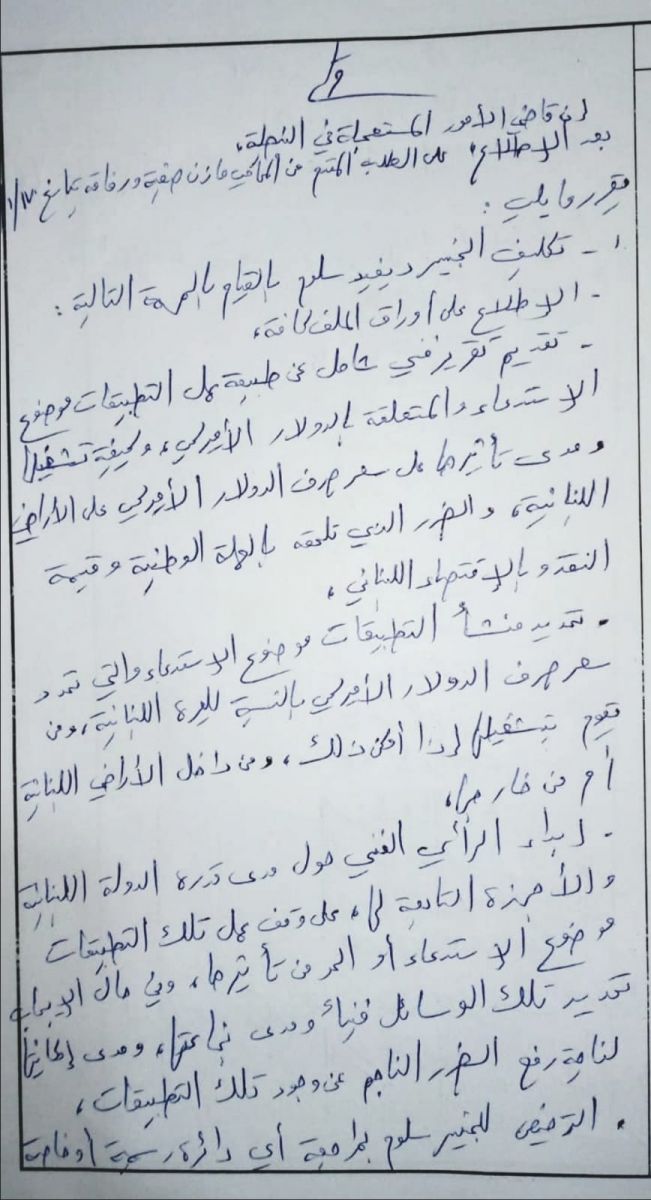 قرار
إن قاضي الأمور المستعجلة في النبطية،
بعد الإطلاع على الطلب المقدم من المحامي مازن صفية ورفاقه بتاريخ
يقرر ما يلي :
١- تكليف الخبير ديفيد سلوم بالقيام بالمهمة التالية :
- الإطلاع على أوراق الملف كافة،
- تقديم تقرير فني شامل عن طبيعة عمل التطبيقات موضوع
الإستدعاء والمتعلقة بالدولار الأميركي، وكيفية تشغيلها
ومدى تأثيرها على سعر صرف الدولار الأميركي على الأراضي
اللبنانية، والضرر الذي تلحقه بالعملة الوطنية وقيمة
النقد و بالإقتصاد اللبناني،
- تحديد منشأ التطبيقات موضوع الإستدعاء والتي تحدد
سعر صرف الدولار الأميركي بالنسبة لليرة اللبنانية، ومن
يقوم بتشغيلها إذا أمكن ذلك، ومن داخل الأراضي اللبنانية
أم من خارجها،
- إبداء الرأي الفني حول مدى قدرة الدولة اللبنانية
والأجهزة التابعة لها، على وقف عمل تلك التطبيقات
موضوع الإستدعاء أو الحد من تأثيرها، وفي حال الإيجاب
تحديد تلك الوسائل فنياً ومدى نجاعتها، ومدى إمكانيتها
لناحية رفع الضرر الناجم عن وجود تلك التطبيقات،
- الترخيص للخبير سلوم بمراجعة أي دائرة رسمية أو خاصة